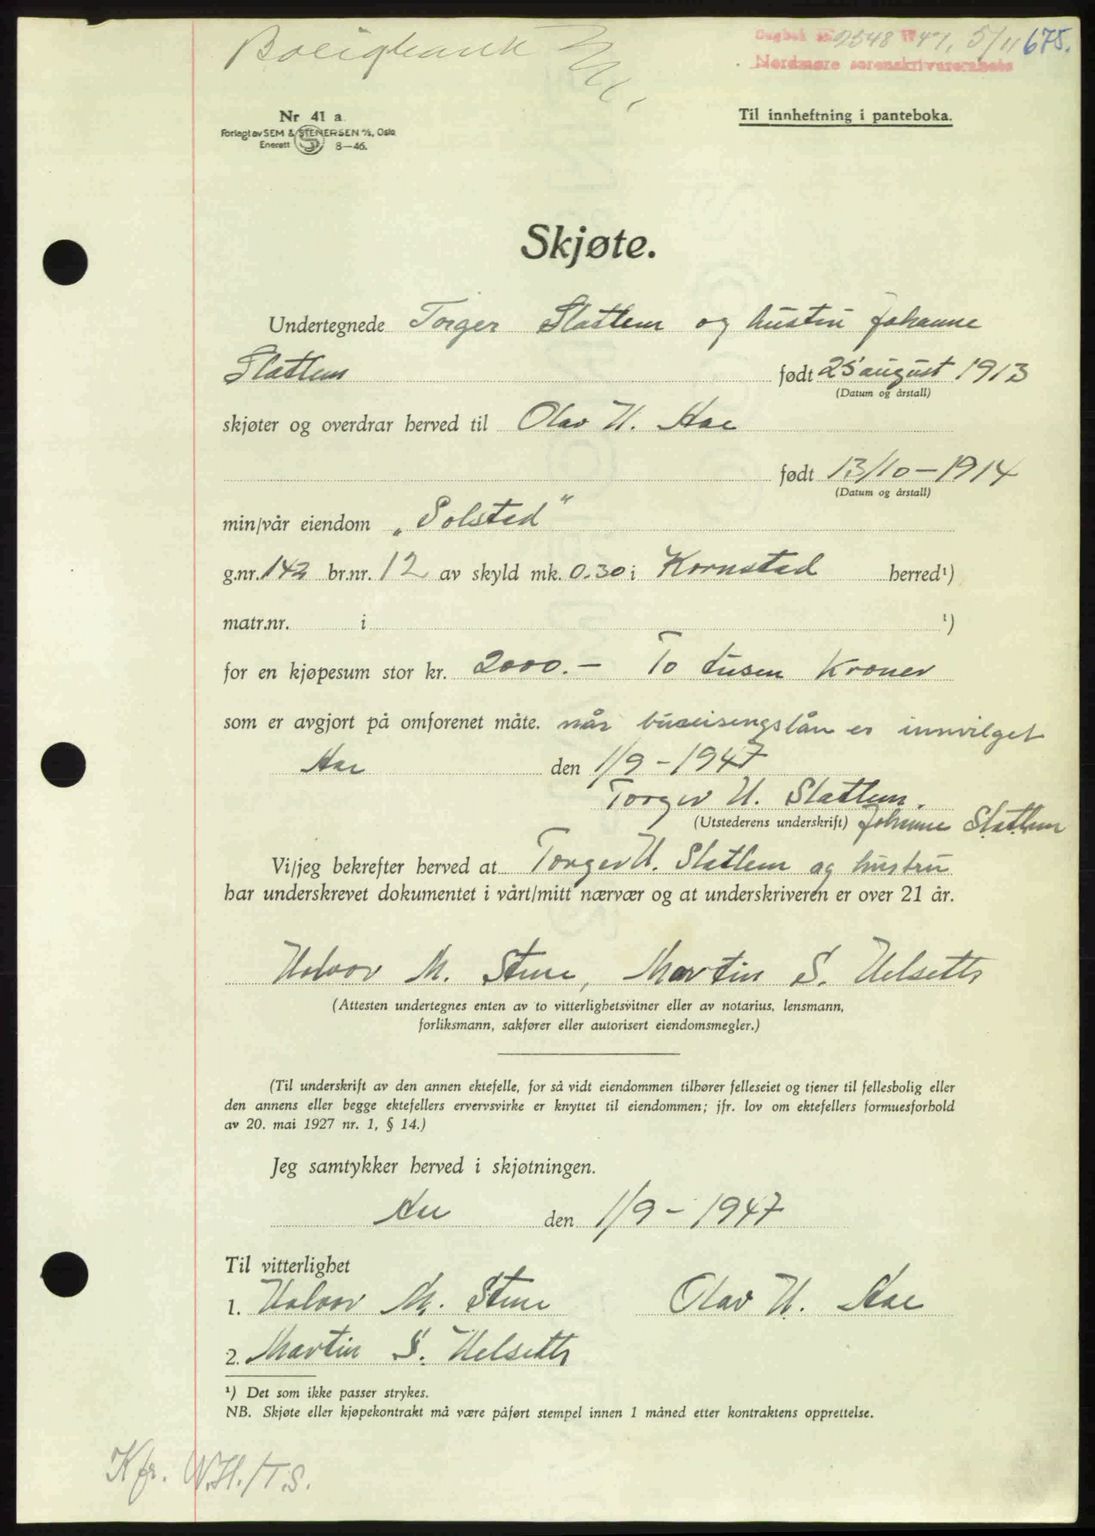 Boligbank
Dagbok nr 2548 19 47, 5/11 675.
Nordmøre sorenskriverembete
Nr 41 a.
Forlagt av SEM & STENERSEN A/S, Oslo
Enerett 8—46.
Til innheftning i panteboka.
Skjøte.
Undertegnede Torger Slatlem og hustru Johanne
Slatlem født 25 august 1913
(Datum og årstall)
skjøter og overdrar herved til Olav H. Aae
født 13/10 - 1914
(Datum og årstall)
min/vår eiendom „Solstad"
g.nr. 142 br.nr. 12 av skyld mk. 0.30 i Kornstad herred¹)
matr.nr. i ¹)
for en kjøpesum stor kr. 2000.- To tusen Kroner
som er avgjort på omforenet måte. når lån er innvilget
Aae den 1/9 - 1947
Torger H. Slatlem.
(Utstederens underskrift) Johanne Slatlem
Vi/jeg bekrefter herved at Torger H. Slatlem og hustru
har underskrevet dokumentet i vårt/mitt nærvær og at underskriveren er over 21 år.
Halvor M. Stene, Martin S. Helseth
(Attesten undertegnes enten av to vitterlighetsvitner eller av notarius, lensmann,
forliksmann, sakfører eller autorisert eiendomsmegler.)
(Til underskrift av den annen ektefelle, for så vidt eiendommen tilhører felleseiet og tjener til fellesbolig eller
den annens eller begge ektefellers ervervsvirke er knyttet til eiendommen; jfr. lov om ektefellers formuesforhold
av 20. mai 1927 nr. 1, § 14.)
Jeg samtykker herved i skjøtningen.
Aae den 1/9 - 1947
Til vitterlighet
1. Halvor M. Stene Olav H. Aae
2. Martin S. Helseth
¹) Det som ikke passer strykes.
NB. Skjøte eller kjøpekontrakt må være påført stempel innen 1 måned etter kontraktens opprettelse.
Kfr. W.H./T.S.